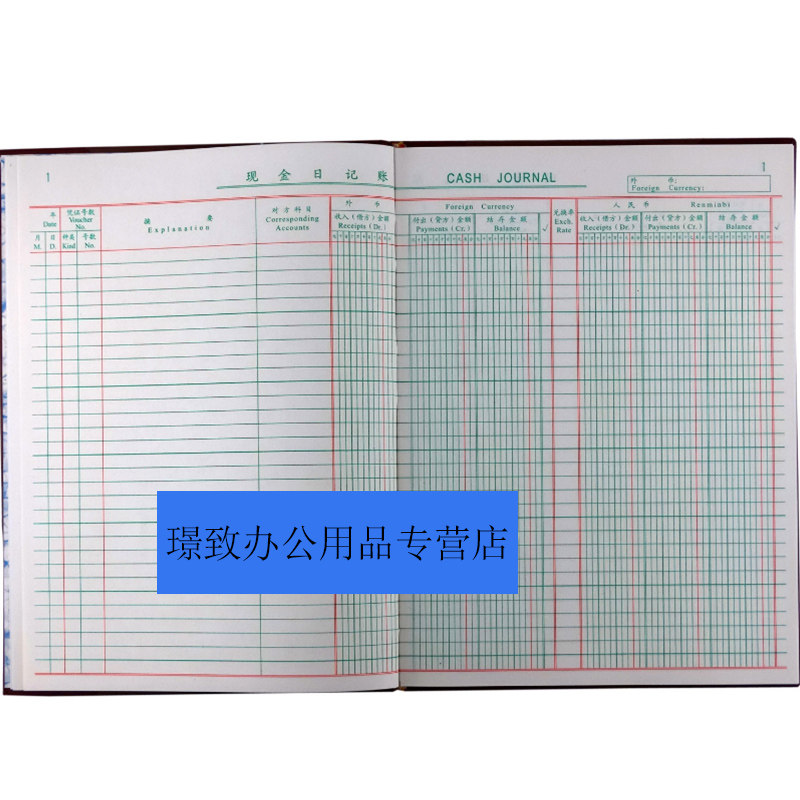 1
现金日记账
CASH JOURNAL
1
外 币:
Foreign Currency:
年
Date
凭证号数
Voucher
No.
月
M.
日
D.
种类
Kind
号数
No.
摘 要
Explanation
对方科目
Corresponding
Accounts
外 币
Foreign Currency
收入(借方)金额
Receipts (Dr.)
付出(贷方)金额
Payments (Cr.)
结存金额
Balance
√
兑换率
Exch.
Rate
人 民 币 Renminbi
收入(借方)金额
Receipts (Dr.)
付出(贷方)金额
Payments (Cr.)
结存金额
Balance
√
璟致办公用品专营店